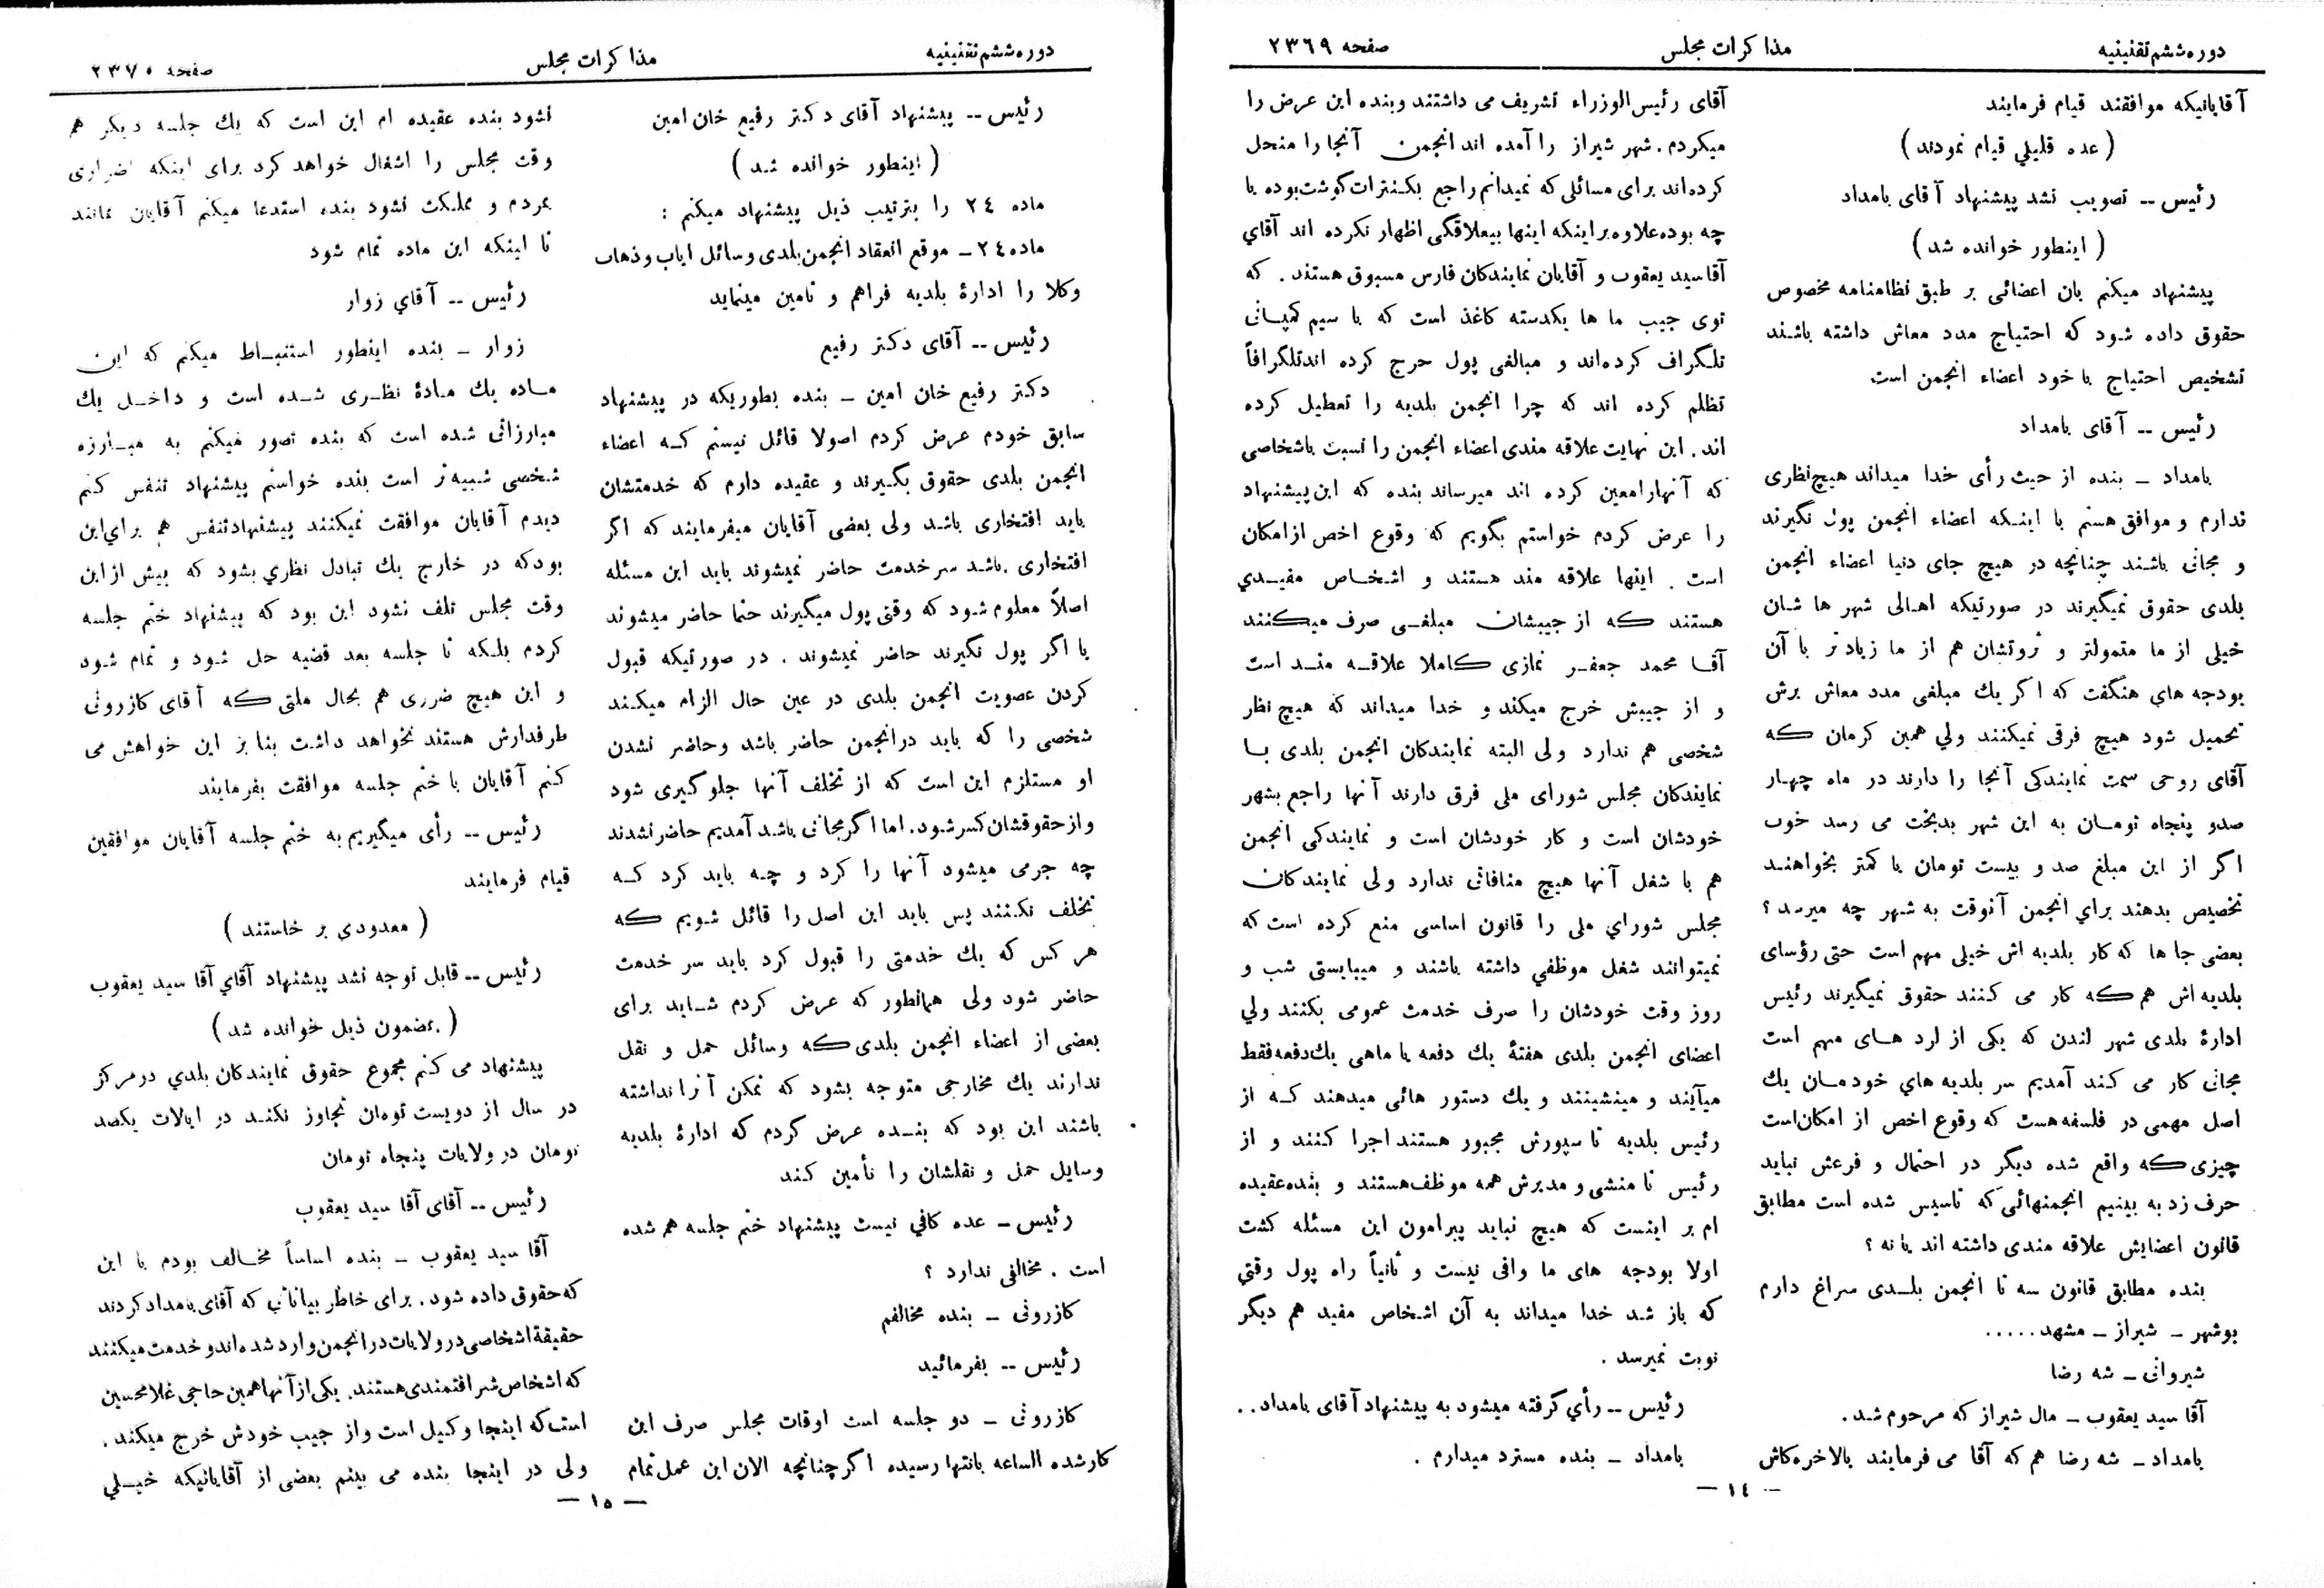 دوره ششم تقنینیه
مذاکرات مجلس
صفحه ٢٣٦٩
آقایانیکه موافقند قیام فرمایند
( عده قلیلی قیام نمودند )
رئیس -- تصویب نشد پیشنهاد آقای بامداد
( اینطور خوانده شد )
پیشنهاد میکنم بان اعضائی بر طبق نظامنامه مخصوص
حقوق داده شود که احتیاج مدد معاش داشته باشند
تشخیص احتیاج با خود اعضاء انجمن است
رئیس -- آقای بامداد
بامداد ـ بنده از حیث رأی خدا میداند هیچ نظری
ندارم و موافق هستم با اینکه اعضاء انجمن پول نگیرند
و مجانی باشند چنانچه در هیچ جای دنیا اعضاء انجمن
بلدی حقوق نمیگیرند در صورتیکه اهالی شهر ها شان
خیلی از ما متمولتر و ثروتشان هم از ما زیادتر با آن
بودجه های هنگفت که اگر یك مبلغی مدد معاش برش
تحمیل شود هیچ فرقی نمیکنند ولی همین کرمان که
آقای روحی سمت نمایندگی آنجا را دارند در ماه چهار
صدو پنجاه تومان به این شهر بدبخت می رسد خوب
اگر از این مبلغ صد و بیست تومان یا کمتر بخواهند
تخصیص بدهند برای انجمن آنوقت به شهر چه میرسد ؟
بعضی جا ها که کار بلدیه اش خیلی مهم است حتی رؤسای
بلدیه اش هم که کار می کنند حقوق نمیگیرند رئیس
ادارهٔ بلدی شهر لندن که یکی از لرد های مهم است
مجانی کار می کند آمدیم سر بلدیه های خودمان یك
اصل مهمی در فلسفه هست که وقوع اخص از امکان است
چیزی که واقع شده دیگر در احتمال و فرعش نباید
حرف زد به بینیم انجمنهائی که تاسیس شده است مطابق
قانون اعضایش علاقه مندی داشته اند یا نه ؟
بنده مطابق قانون سه تا انجمن بلدی سراغ دارم
بوشهر ـ شیراز ـ مشهد.....
شیروانی ـ شه رضا
آقا سید یعقوب ـ مال شیراز که مرحوم شد.
بامداد ـ شه رضا هم که آقا می فرمایند بالاخره کاش
آقای رئیس الوزراء تشریف می داشتند وبنده این عرض را
میکردم. شهر شیراز را آمده اند انجمن آنجا را منحل
کرده‌اند برای مسائلی که نمیدانم راجع بکنترات گوشت بوده یا
چه بوده علاوه براینکه اینها بیعلاقگی اظهار نکرده اند آقای
آقاسید یعقوب و آقایان نمایندگان فارس مسبوق هستند. که
توی جیب ما ها یکدسته کاغذ است که با سیم کمپانی
تلگراف کرده‌اند و مبالغی پول خرج کرده اندتلگرافاً
تظلم کرده اند که چرا انجمن بلدیه را تعطیل کرده
اند. این نهایت علاقه مندی اعضاء انجمن را نسبت باشخاصی
که آنهارامعین کرده اند میرساند بنده که این پیشنهاد
را عرض کردم خواستم بگویم که وقوع اخص ازامکان
است . اینها علاقه مند هستند و اشخاص مفیدی
هستند که از جیبشان مبلغی صرف میکنند
آقا محمد جعفر نمازی کاملا علاقه مند است
و از جیبش خرج میکند و خدا میداند که هیچ نظر
شخصی هم ندارد ولی البته نمایندگان انجمن بلدی با
نمایندگان مجلس شورای ملی فرق دارند آنها راجع بشهر
خودشان است و کار خودشان است و نمایندگی انجمن
هم با شغل آنها هیچ منافاتی ندارد ولی نمایندگان
مجلس شورای ملی را قانون اساسی منع کرده است که
نمیتوانند شغل موظفی داشته باشند و میبایستی شب و
روز وقت خودشان را صرف خدمت عمومی بکنند ولی
اعضای انجمن بلدی هفتهٔ یك دفعه یا ماهی یك دفعه فقط
میآیند و مینشینند و یك دستور هائی میدهند که از
رئیس بلدیه تا سپورش مجبور هستند اجرا کنند و از
رئیس تا منشی و مدیرش همه موظف هستند و بنده عقیده
ام بر اینست که هیچ نباید پیرامون این مسئله گشت
اولا بودجه های ما وافی نیست و ثانیاً راه پول وقتی
که باز شد خدا میداند به آن اشخاص مفید هم دیگر
نوبت نمیرسد .
رئیس -- رأی گرفته میشود به پیشنهاد آقای بامداد..
بامداد ـ بنده مسترد میدارم .
— ١٤ —
دوره ششم تقنینیه
مذاکرات مجلس
صفحه ٢٣٧٠
رئیس -- پیشنهاد آقای دکتر رفیع خان امین
( اینطور خوانده شد )
ماده ٢٤ را بترتیب ذیل پیشنهاد میکنم :
ماده ٢٤ ـ موقع انعقاد انجمن بلدی وسائل ایاب و ذهاب
وکلا را ادارهٔ بلدیه فراهم و تامین مینماید
رئیس -- آقای دکتر رفیع
دکتر رفیع خان امین ـ بنده بطوریکه در پیشنهاد
سابق خودم عرض کردم اصولا قائل نیستم که اعضاء
انجمن بلدی حقوق بگیرند و عقیده دارم که خدمتشان
باید افتخاری باشد ولی بعضی آقایان میفرمایند که اگر
افتخاری باشد سر خدمت حاضر نمیشوند باید این مسئله
اصلاً معلوم شود که وقتی پول میگیرند حتما حاضر میشوند
یا اگر پول نگیرند حاضر نمیشوند . در صورتیکه قبول
کردن عضویت انجمن بلدی در عین حال الزام میکند
شخصی را که باید درانجمن حاضر باشد وحاضر نشدن
او مستلزم این است که از تخلف آنها جلوگیری شود
و از حقوقشان کسر شود. اما اگر مجانی باشد آمدیم حاضر نشدند
چه جرمی میشود آنها را کرد و چه باید کرد که
تخلف نکنند پس باید این اصل را قائل شویم که
هر کس که یك خدمتی را قبول کرد باید سر خدمت
حاضر شود ولی همانطور که عرض کردم شاید برای
بعضی از اعضاء انجمن بلدی که وسائل حمل و نقل
ندارند یك مخارجی متوجه بشود که تمکن آنرا نداشته
باشند این بود که بنده عرض کردم که ادارهٔ بلدیه
وسایل حمل و نقلشان را تأمین کند
رئیس ـ عده کافی نیست پیشنهاد ختم جلسه هم شده
است . مخالفی ندارد ؟
کازرونی ـ بنده مخالفم
رئیس -- بفرمائید
کازرونی ـ دو جلسه است اوقات مجلس صرف این
کارشده الساعه بانتها رسیده اگر چنانچه الان این عمل تمام
نشود بنده عقیده ام این است که یك جلسه دیگر هم
وقت مجلس را اشغال خواهد کرد برای اینکه اضراری
بمردم و مملکت نشود بنده استدعا میکنم آقایان بمانند
تا اینکه این ماده تمام شود
رئیس -- آقای زوار
زوار ـ بنده اینطور استنباط میکنم که این
ماده یك مادهٔ نظری شده است و داخل یك
مبارزاتی شده است که بنده تصور میکنم به مبارزه
شخصی شبیه‌تر است بنده خواستم پیشنهاد تنفس کنم
دیدم آقایان موافقت نمیکنند پیشنهادتنفس هم برای این
بودکه در خارج یك تبادل نظری بشود که بیش از این
وقت مجلس تلف نشود این بود که پیشنهاد ختم جلسه
کردم بلکه تا جلسه بعد قضیه حل شود و تمام شود
و این هیچ ضرری هم بحال ملتی که آقای کازرونی
طرفدارش هستند نخواهد داشت بنا بر این خواهش می
کنم آقایان با ختم جلسه موافقت بفرمایند
رئیس -- رأی میگیریم به ختم جلسه آقایان موافقین
قیام فرمایند
( معدودی بر خاستند )
رئیس -- قابل توجه نشد پیشنهاد آقای آقا سید یعقوب
( بمضمون ذیل خوانده شد )
پیشنهاد می کنم مجموع حقوق نمایندگان بلدی درمرکز
در سال از دویست تومان تجاوز نکند در ایالات یکصد
تومان در ولایات پنجاه تومان
رئیس -- آقای آقا سید یعقوب
آقا سید یعقوب ـ بنده اساساً مخالف بودم با این
که حقوق داده شود. برای خاطر بیاناتی که آقای بامداد کردند
حقیقة اشخاصی در ولایات در انجمن وارد شده اند و خدمت میکنند
که اشخاص شرافتمندی هستند. یکی از آنها همین حاجی غلامحسین
است که اینجا وکیل است واز جیب خودش خرج میکند.
ولی در اینجا بنده می بینم بعضی از آقایانیکه خیلی
— ١٥ —